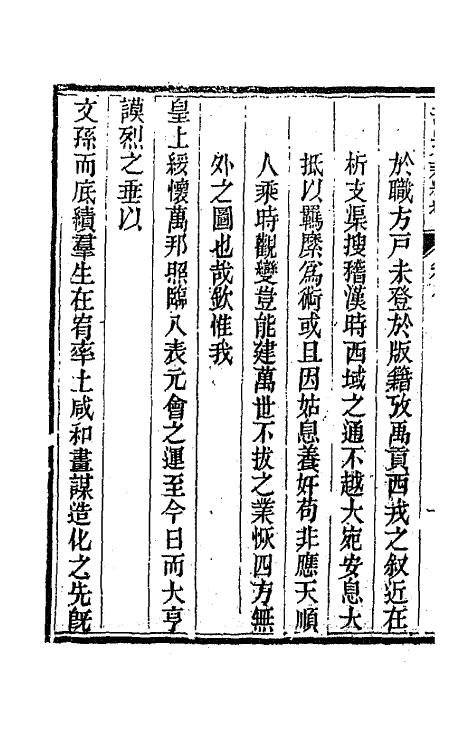 於職方戸未登於版籍攷禹貢西戎之叙近在
析支渠搜稽漢時西域之通不越大宛安息大
抵以羈縻爲術或且因姑息養奸苟非應天順
人乘時觀變豈能建萬世不拔之業恢四方無
外之圖也哉欽惟我
皇上綏懷萬邦照臨八表元會之運至今日而大亨
謨烈之垂以
文孫而底績羣生在宥率土咸和畫謀造化之先旣